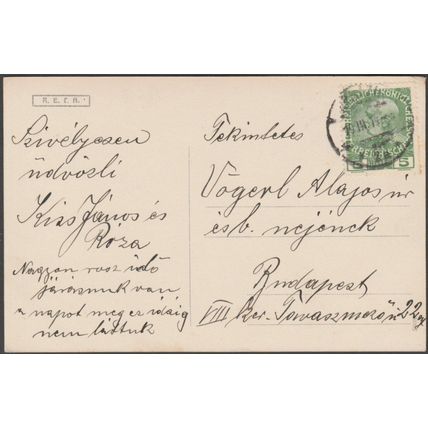 R. E. F. A.
Szivélyesen
üdvözli
Kiss János és
Róza
Nagyon rosz idő
járásunk van
a napot még ez idáig
nem láttuk
Tekintetes
Vögerl Alajos úr
és b. nejének
Budapest
VIII ker. Tavaszmező u 22
5